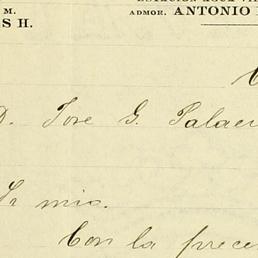 M.
S H.
ADMOR. ANTONIO
D. Jose G. Palae
Sr mio.
Con la prece